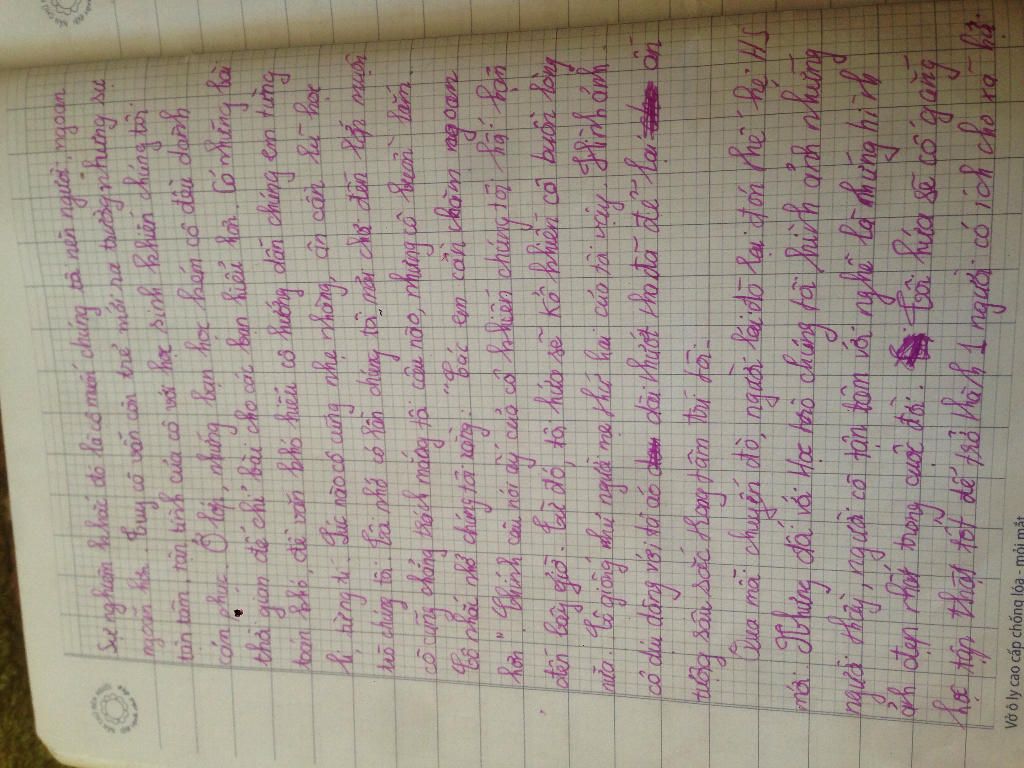 Sự nghiêm khắc đó là cô mới chúng ta nên người, ngoan
ngoãn hơn. Tuy cô vẫn còn trẻ mới ra trường nhưng sự
tận tâm, tận tình của cô với học sinh khiến chúng tôi
cảm phục. Ở lớp, những bạn học kém cô đều dành
thời gian để chỉ bài cho các bạn hiểu hơn. Có những bài
toán khó, đề văn khó hiểu cô hướng dẫn chúng em từng
li từng tí. Lúc nào cô cũng nhẹ nhàng, ân cần khi học
trò chúng tôi. Tôi nhớ có lần chúng tôi mải chơi đến lớp muộn
cô cũng chẳng trách mắng tôi câu nào, nhưng cô buồn lắm
Cô nhắc nhở chúng tôi rằng: "Các em cần chăm ngoan
hơn". Chính câu nói ấy của cô khiến chúng tôi hối hận
đến bây giờ. Từ đó, tôi hứa sẽ ko khiến cô buồn lòng
nữa. Cô giống như người mẹ thứ hai của tôi vậy. Hình ảnh
cô dịu dàng với tà áo dài thướt tha đã để lại ấn
tượng sâu sắc trong tâm trí tôi.
Qua mỗi chuyến đò, người lái đò lại đón thế hệ HS
mới. Nhưng đối với học trò chúng tôi hình ảnh những
người thầy, người cô tận tâm với nghề là những hình
ảnh đẹp nhất trong cuộc đời. Tôi hứa sẽ cố gắng
học tập thật tốt để trở thành 1 người có ích cho xã hội.
Vở ô ly cao cấp chống lóa - mỏi mắt